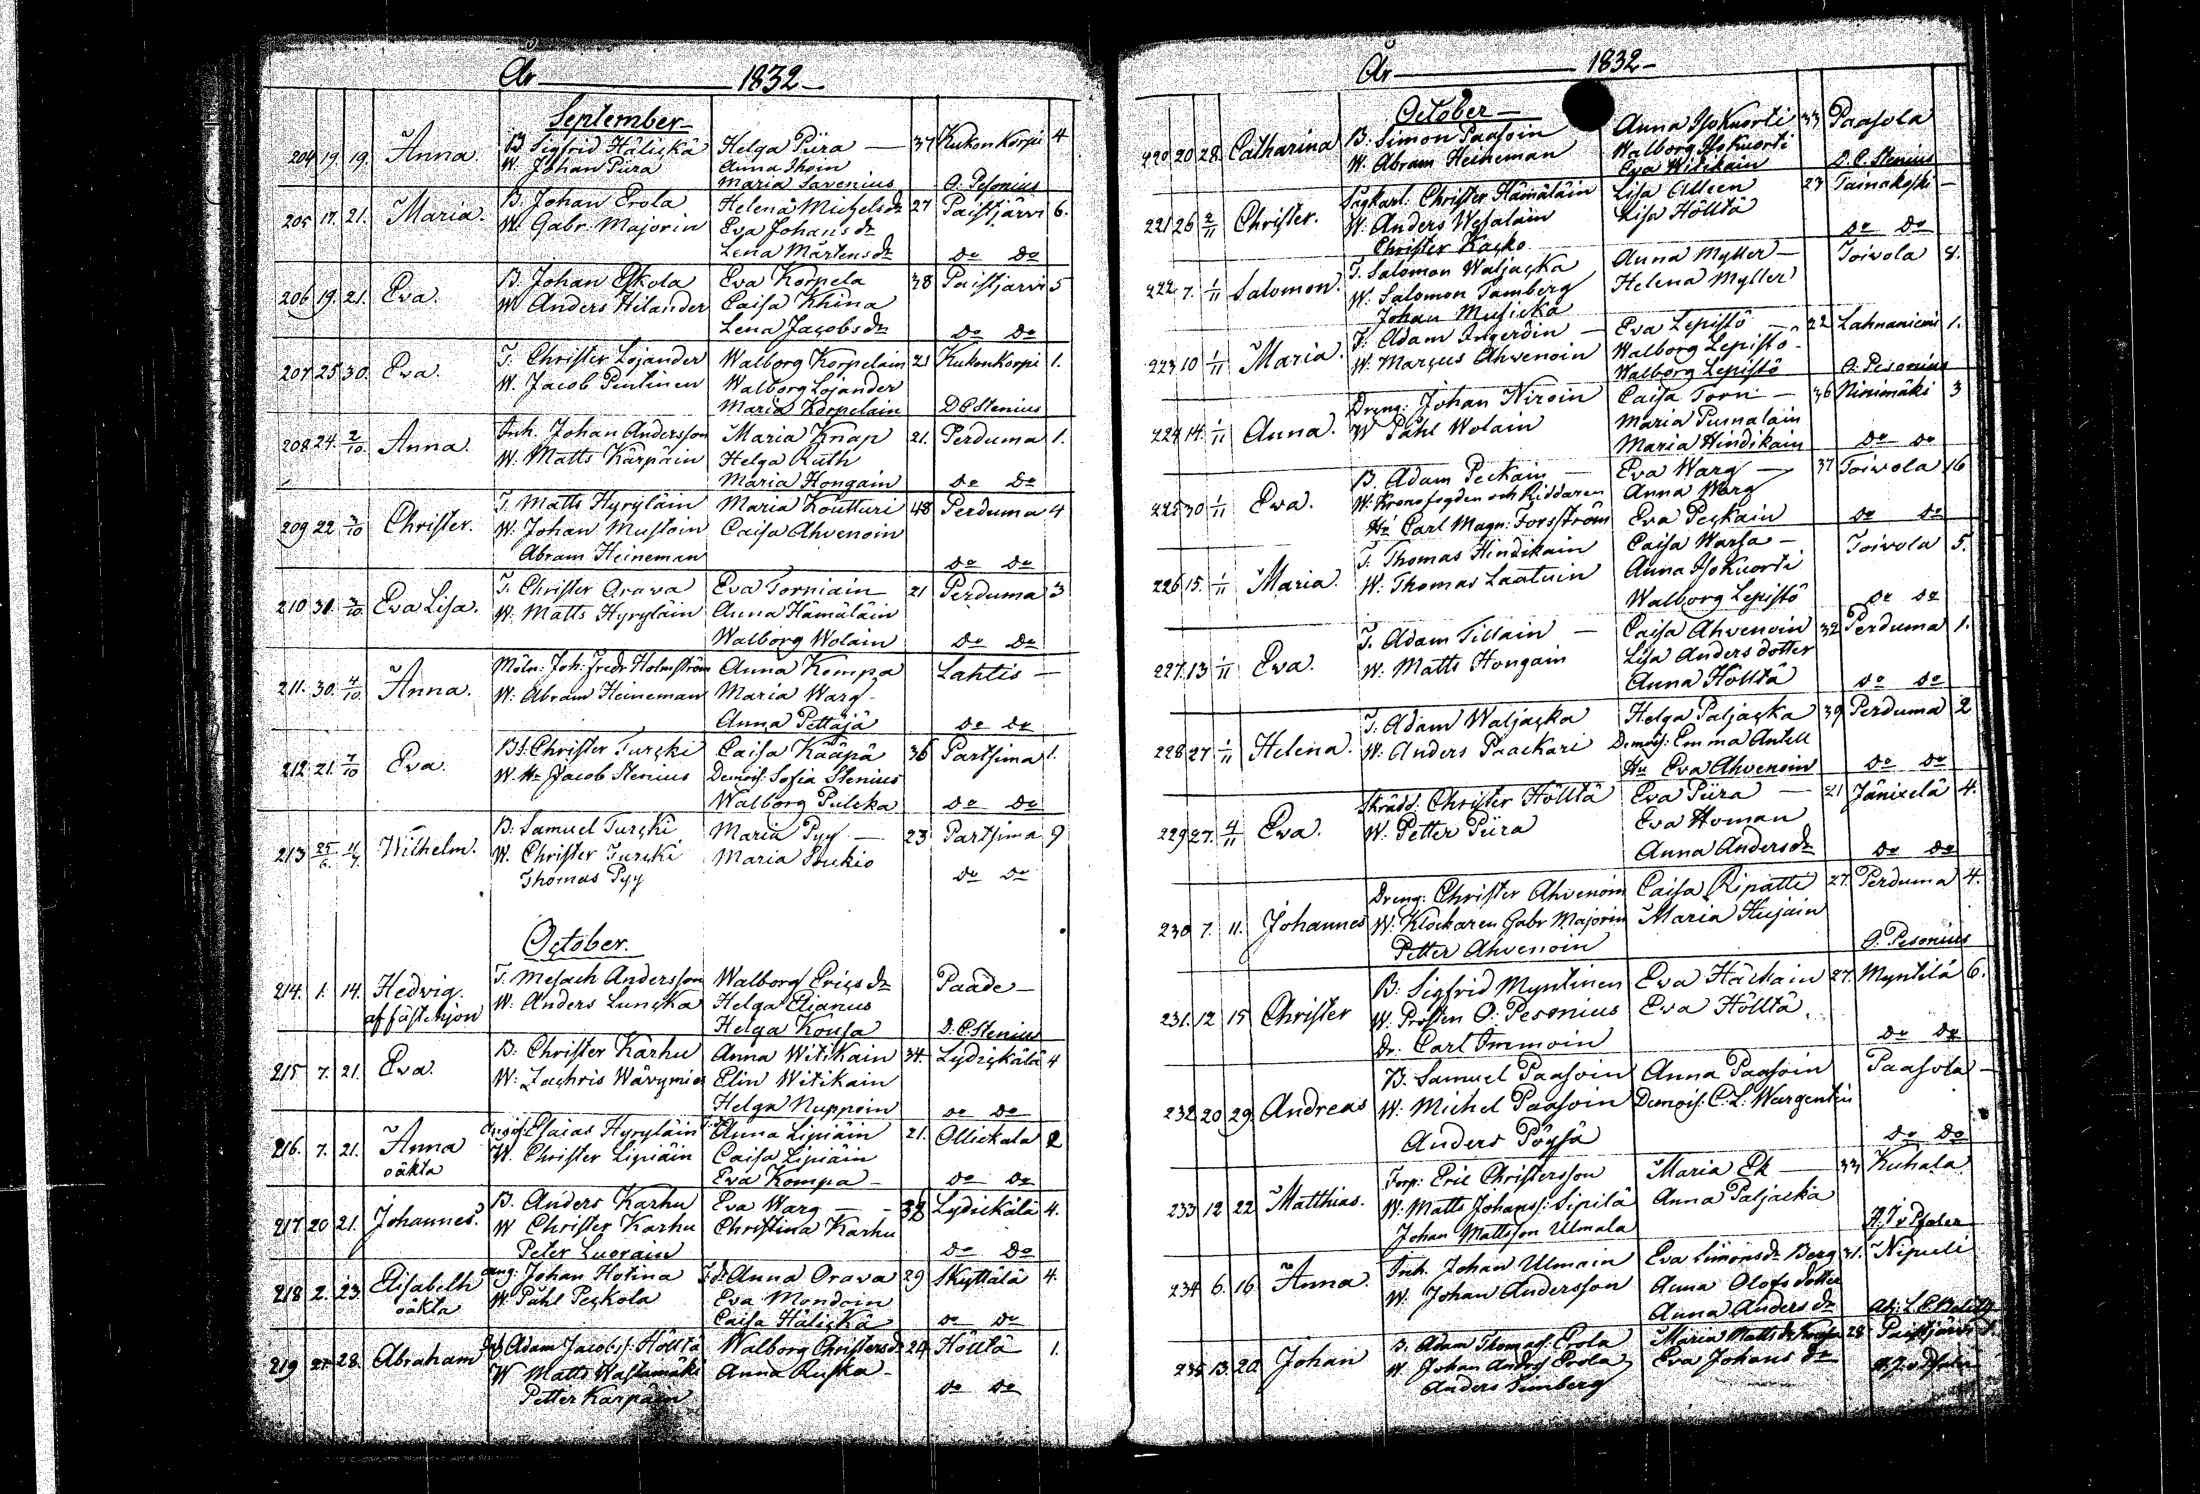 År 1832
September
204 19 19. Anna. B. Sigfrid Häliskä Helga Piira 37 Kukonkorpi 4
W. Johan Piira Anna Ihoin
Maria Savenius O. Pesonius
205 17. 21. Maria. B. Johan Erola Helena Michelsdr 27 Paistjärvi 6.
W. Gabr. Majorin Eva Johansdr
Lena Mårtensdr do do
206 19. 21. Eva. B. Johan Eskola Eva Korpela 38 Paistjärvi 5
W Anders Hilander Caisa Khina
Lena Jacobsdr do do
207 25 30. Eva. T. Christer Lojander Walborg Korpelain 21 Kukonkorpi 1.
W. Jacob Pentinen Walborg Lojander
Maria Korpelain D C Stenius
208 24. 2/10 Anna. Inh. Johan Andersson Maria Knap 21. Perduma 1.
W. Matts Kärpäin Helga Ruth
Maria Hongain do do
209 22 3/10 Christer. T. Matts Hyryläin Maria Koutturi 48 Perduma 4
W. Johan Mustoin Caisa Ahvenoin
Abram Heineman do do
210 31. 3/10 Eva Lisa. T. Christer Orava Eva Torniain 21 Perduma 3
W. Matts Hyryläin Anna Hämäläin
Walborg Wolain do do
211. 30. 4/10 Anna. Möln: Joh: Fredr Holmström Anna Kompa Lahtis
W. Abram Heineman Maria Warg
Anna Pettäjä do do
212 21. 7/10 Eva. Bs. Christer Turski Caisa Kääpä 36 Partsima 1.
W. Hr Jacob Stenius Demois. Sofia Stenius
Walborg Pulska do do
213 25/6. 11/7. Wilhelm. B. Samuel Turski Maria Pyy 23 Partsima 9
W. Christer Turski Maria Soukio
Thomas Pyy do do
October.
214. 1. 14. Hedvig. T. Mesach Andersson Walborg Ericsdr Paade
af fästehjon W. Anders Lunska Helga Elianus
Helga Kousa D. C Stenius
215 7. 21. Eva. B. Christer Karhu Anna Witikain 34. Lydickälä 4
W. Zachris Wärynien Elin Witikain
Helga Nuppoin do do
216. 7. 21. Anna Esaias Hyryläin Anna Lipiäin 21. Ollickala 2
oäkta W. Christer Lipiäin Caisa Lipiäin
Eva Kompa do do
217 20 21. Johannes. B. Anders Karhu Eva Warg 38 Lydickälä 4.
W Christer Karhu Christina Karhu
Peter Luorain do do
218 2. 23 Elisabeth Johan Hotina Anna Orava 29 Skyttälä 4.
oäkta W Påhl Peskola Eva Mondoin
Caisa Häliskä do do
219 21 28. Abraham Adam Jacobs: Hölttä Walborg Christersdr 24 Hölttä 1.
W Matts Wastamäki Anna Ruska
Petter Karpäin do do
År 1832
October
220 20 28. Catharina B. Simon Paasoin Anna Isokuorti 33 Paasola
W. Abram Heineman Walborg Isokuorti
Eva Witikain D. C. Stenius
221 26 2/11 Christer. Sågkarl. Christer Hämäläin Lisa Alleen 23 Tainakoski
W. Anders Wesalain Lisa Hölttä
Christer Kasko do do
222 7. 1/11 Salomon. T. Salomon Waljacka Anna Myller Toivola 8.
W. Salomon Tamberg Helena Myller
Johan Musicka
223 10 1/11 Maria. T. Adam Ingerdin Eva Lepistö 22 Lahnaniemi 1.
W. Marcus Ahvenoin Walborg Lepistö
Walborg Lepistö O. Pesonius
224 14. 1/11 Anna. Dreng: Johan Niroin Caisa Torn 36 Ninimäki 3
W Påhl Wolain Maria Punalain
Maria Hindikain do do
225 30 1/11 Eva. B. Adam Peckain Eva Warg 37 Toivola 16
W. Kronofogden och Riddaren Anna Warg
Hr Carl Magn: Forsström Eva Peckain do do
226 15. 1/11 Maria. T. Thomas Hindikain Caisa Warsa Toivola 5.
W. Thomas Laatuin Anna Isokuorti
Walborg Lepistö do do
227. 13 1/11 Eva. T. Adam Tillain Caisa Ahvenoin 32 Perduma 1.
W. Matts Hongain Lisa Anders dotter
Anna Hölttä do do
228 27 1/11 Helena. T. Adam Waljacka Helga Paljacka 39 Perduma 2
W. Anders Paackari Demois: Emma Antell
Hu Eva Ahvenoin do do
229 27. 4/11 Eva. Skrädd. Christer Hölttä Eva Piira 21 Jänixelä 4.
W. Petter Piira Eva Homan
Anna Andersdr do do
230 7. 11. Johannes Dreng: Christer Ahvenoin Caisa Ripatti 27. Perduma 4.
W. Klockaren Gabr Majorin Maria Hujain
Petter Ahvenoin O. Pesonius
231. 12 15 Christer B. Sigfrid Myntinen Eva Häckain 27. Myntilä 6.
W. Prosten O. Pesonius Eva Hölttä.
Dr. Carl Immoin do do
232 20 29. Andreas B. Samuel Paasoin Anna Paasoin Paasola
W. Michel Paasoin Demois: C. L. Wargentin
Anders Pöysä do do
233 12 22 Matthias. Inp: Eric Christersson Maria Ek 33 Kuhala
W. Matts Johanss: Sipilä Anna Paljacka
Johan Mattsson Ulmala H. J v Pfaler
234 6. 16 Anna. Inh. Johan Ulmain Eva Simonsdr Berg 31. Nipuli
W. Johan Andersson Anna Olofsdotter
Anna Andersdr
235 13. 20. Johan B. Adam Thomas: Erola Maria Mattsdr 28 Paistjärvi
W Johan Anders: Erola Eva Johans dr
Anders Simberg